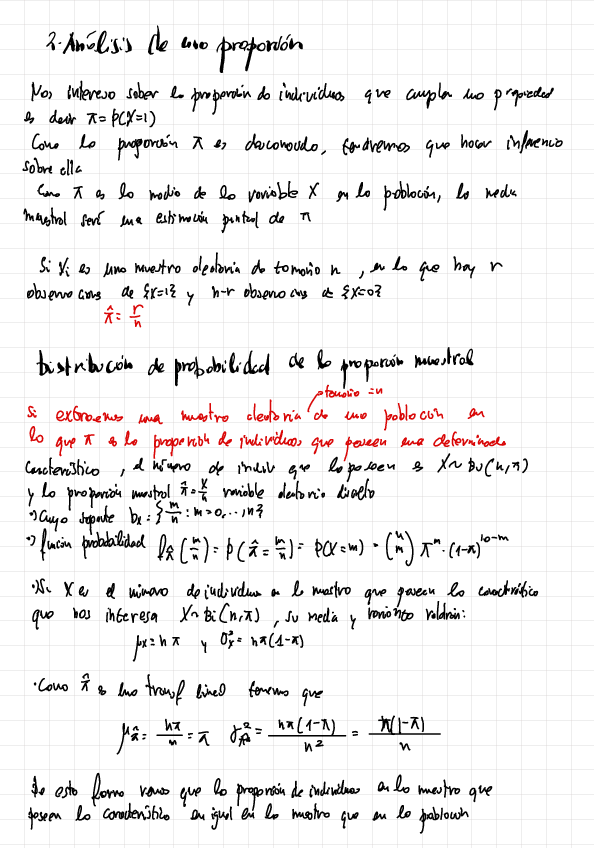 2. Análisis de una proporción
Nos interesa saber la proporción de individuos que cumplen una propiedad
es decir π = P(X=1)
Como la proporción π es desconocida, tendremos que hacer inferencia
sobre ella
Como π es la media de la variable X en la población, la media
muestral será una estimación puntual de π
Si Xi es una muestra aleatoria de tamaño n, en la que hay r
observaciones de {X=1} y n-r observaciones de {X=0}
π̂ = r/n
Distribución de probabilidad de la proporción muestral
tamaño = n
Si extraemos una muestra aleatoria de una población en
la que π es la proporción de individuos que poseen una determinada
característica, el número de individ que la poseen es X~Bi(n,π)
y la proporción muestral π̂ = X/n variable aleatoria discreta
•) Cuyo soporte bx = {m/n : m=0,..,n}
•) función probabilidad fπ̂(m/n) = P(π̂ = m/n) = P(X=m) = (n m) π^m · (1-π)^10-m
•Si X es el número de individuos en la muestra que poseen la característica
que nos interesa X~Bi(n,π), su media y varianza valdrán:
μx = nπ y σ²x = nπ(1-π)
•Como π̂ es una transf lineal tenemos que
μπ̂ = nπ/n = π σ²π̂ = nπ(1-π)/n² = π(1-π)/n
De esta forma vemos que la proporción de individuos en la muestra que
poseen la característica es igual en la muestra que en la población